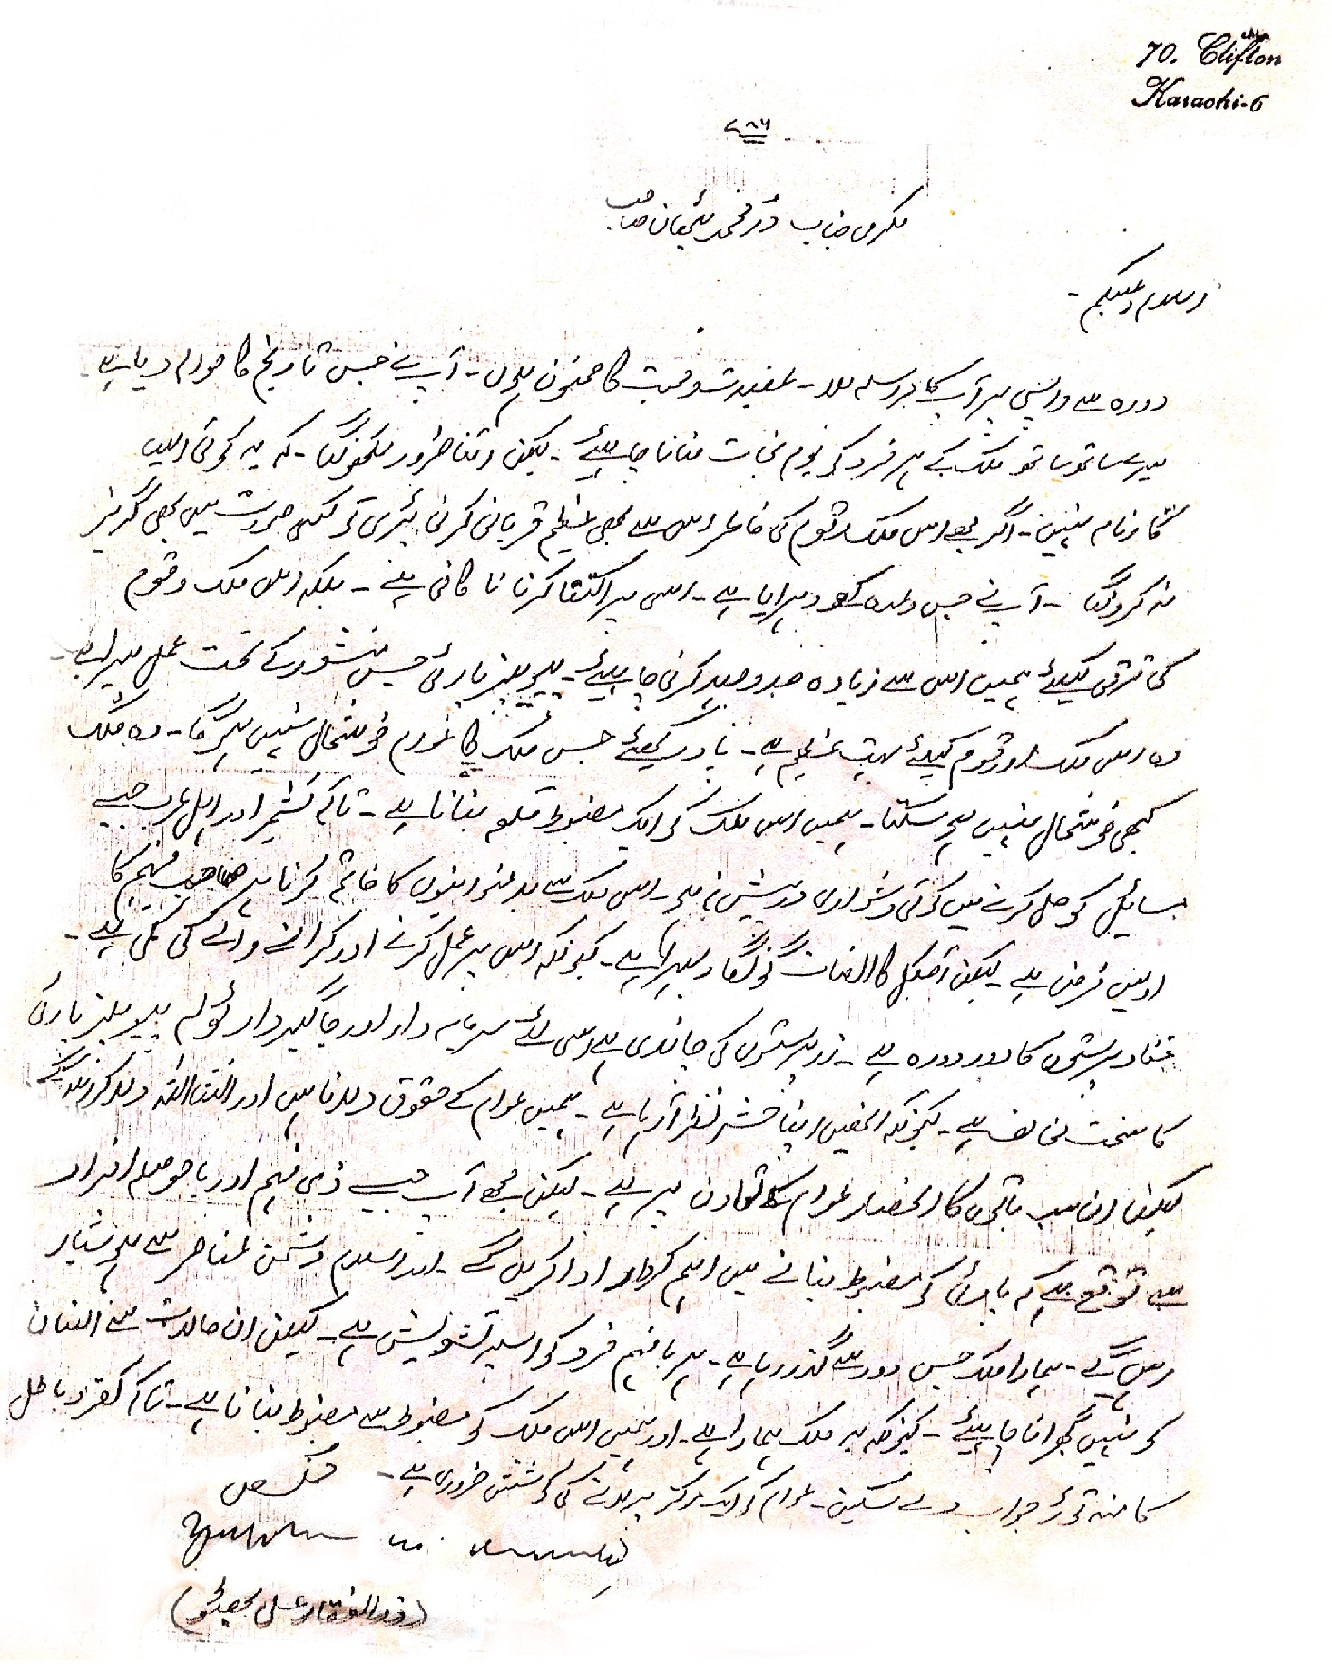 70. Clifton
Karachi-6
۷۸۶
مکرمی جناب نور محمد صاحب
السلام علیکم -
دورہ سے واپسی پر آپ کا مراسلہ ملا - عقیدت و محبت کا ممنون ہوں - آپ نے جس تاریخ کا حوالہ دیا ہے -
میرے ساتھ ساتھ ملک کے ہر فرد کو یوم نجات منانا چاہیئے - لیکن اتنا ضرور لکھونگا - کہ یہ کوئی ایسا
کارنامہ نہیں - اگر مجھے اس ملک و قوم کی خاطر اس سے بھی عظیم قربانی کرنی پڑی تو کسی صورت میں بھی گریز
نہ کرونگا - آپ نے جس وعدہ کو دہرایا ہے - اس پر اکتفا کرنا نا کافی ہے - بلکہ اس ملک و قوم
کی ترقی کیلئے ہمیں اس سے زیادہ جدوجہد کرنی چاہیئے - پیپلز پارٹی جس منشور کے تحت عمل پیرا ہے -
وہ اس ملک اور قوم کیلئے بہت عظیم ہے - یاد رکھیئے جس ملک کا عوام خوشحال نہیں ہوگا - وہ ملک
کبھی خوشحال نہیں ہو سکتا - ہمیں اس ملک کو ایک مضبوط قلعہ بنانا ہے - تاکہ کشمیر اور اہل عرب جیسے
مسائل کو حل کرنے میں کوئی دشواری درپیش نہ ہو - اس ملک سے بدعنوانیوں کا خاتمہ کرنا ہر صاحب فہم کا
اولین فرض ہے - لیکن آجکل کا انصاف گونگا و بہرا ہے - کیونکہ اس پر عمل کرنے اور کرانے والے کی کمی ہے -
مفاد پرستوں کا دور دورہ ہے - زر پرستوں کی چاندی ہے اسی لئے سرمایہ دار اور جاگیردار ٹولہ پیپلز پارٹی
کا سخت مخالف ہے - کیونکہ انھیں اپنا حشر نظر آ رہا ہے - ہمیں عوام کے حقوق دلانا ہیں اور انشاءاللہ دلا کر رہیں گے
لیکن ان سب باتوں کا انحصار عوام کے تعاون پر ہے - لیکن مجھے آپ جیسے ذی فہم اور باحوصلہ افراد
سے توقع ہے کہ پارٹی کو مضبوط بنانے میں اہم کردار ادا کریں گے - اور اسلام دشمن عناصر سے ہوشیار
رہیں گے - ہمارا ملک جس دور سے گذر رہا ہے - ہر بافہم فرد کو اس پر تشویش ہے - لیکن ان حالات سے انسان
کو نہیں گھبرانا چاہیئے - کیونکہ یہ ملک ہمارا ہے - اور ہمیں اس ملک کو مضبوط سے مضبوط بنانا ہے - تاکہ کفر و باطل
کا منہ توڑ جواب دے سکیں - عوام کو ایک مرکز پر لانے کی کوشش ضروری ہے -
مخلص
(ذوالفقار علی بھٹو)